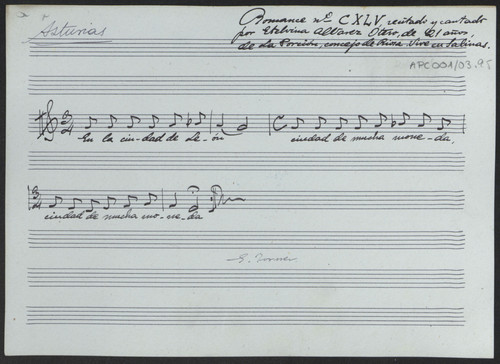 Asturias
Romance nº CXLV recitado y cantado
por Etelvina Alvarez Otero, de 61 años,
de La Porción, concejo de Riosa. Vive en Salinas.
APC001/03.95
En la ciu-dad de Le-ón ciudad de mucha mone-da,
ciudad de mucha mo-ne-da